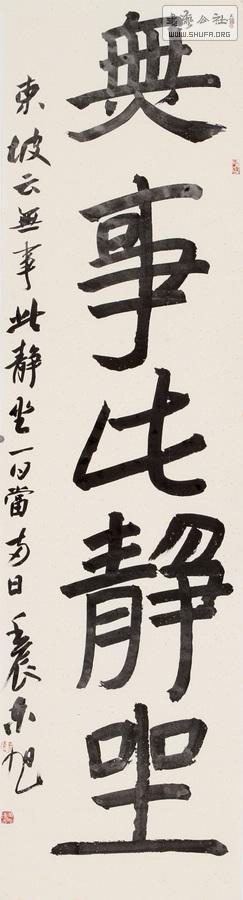 無事此静坐
東坡云無事此静坐一日當兩日壬辰東旭
書法公社
WWW.SHUFA.ORG